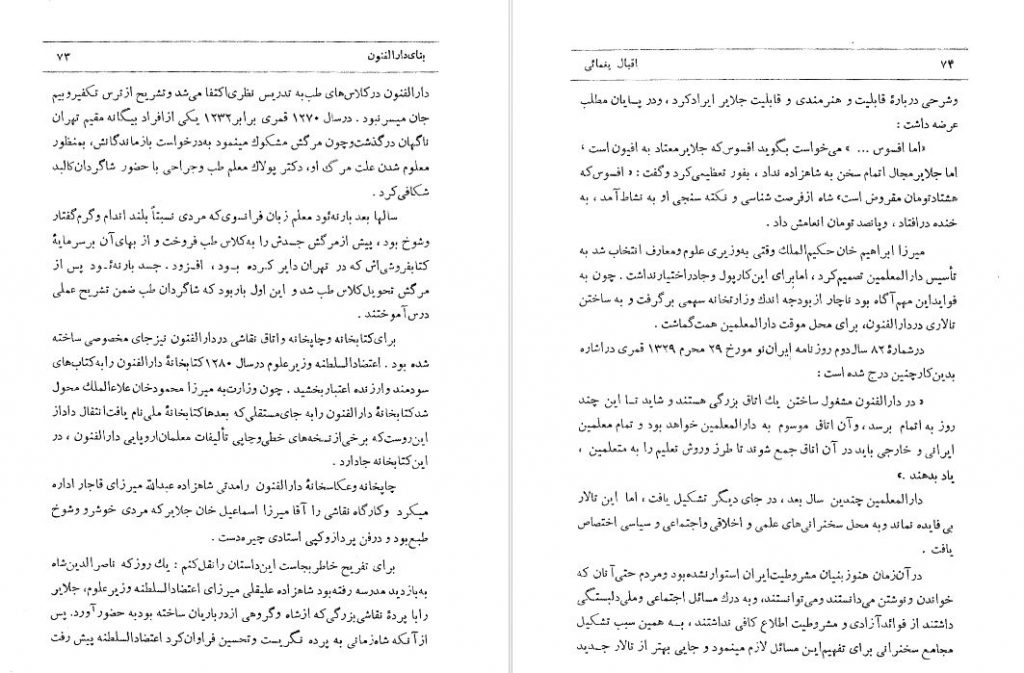 بنای دارالفنون ۷۳
دارالفنون درکلاس‌های طب به تدریس نظری اکتفا می‌شد وتشریح ازترس تکفیروبیم
جان میسرنبود . درسال ۱۲۷۰ قمری برابر ۱۲۳۲ یکی ازافراد بیگانه مقیم تهران
ناگهان درگذشت‌وچون مرگش مشکوک مینمود به‌درخواست بازماندگانش، بمنظور
معلوم شدن علت مرگ او، دکتر پولاک معلم طب وجراحی با حضور شاگردان‌کالبد
شکافی‌کرد .
سالها بعد بارنه‌ئود معلم زبان فرانسوی‌که مردی نسبتاً بلند اندام وگرم‌گفتار
وشوخ بود ، پیش ازمرگش جسدش را به‌کلاس طب فروخت و از بهای‌آن برسرمایهٔ
کتابفروشی‌اش که در تهران دایر کرده بود ، افزود . جسد بارنه‌ئود پس از
مرگش تحویل‌کلاس طب شد و این اول باربود که شاگردان طب ضمن تشریح عملی
درس‌آموختند .
برای‌کتابخانه وچاپخانه واتاق نقاشی دردارالفنون نیزجای مخصوصی ساخته
شده بود . اعتضادالسلطنه وزیرعلوم درسال ۱۲۸۰کتابخانهٔ دارالفنون رابه‌کتاب‌های
سودمند وارزنده اعتبار بخشید . چون وزارت‌به میرزا محمودخان علاءالملک محول
شدکتابخانهٔ دارالفنون رابه جای‌مستقلی‌که بعدهاکتابخانهٔ ملی‌نام یافت‌انتقال داداز
این‌روست‌که برخی‌ازنسخه‌های خطی‌وچاپی تألیفات معلمان‌اروپایی دارالفنون ، در
این‌کتابخانه جادارد .
چاپخانه وعکاسخانهٔ دارالفنون رامدتی شاهزاده عبدالله میرزای قاجار اداره
میکرد وکارگاه نقاشی را آقا میرزا اسماعیل خان جلایرکه مردی خوشرو وشوخ
طبع‌بود و درفن پردازوکپی استادی چیره‌دست .
برای تفریح خاطر بجاست این‌داستان رانقل‌کنم : یک روزکه ناصرالدین‌شاه
به‌بازدید مدرسه رفته‌بود شاهزاده علیقلی میرزای اعتضادالسلطنه وزیرعلوم، جلایر
رابا پردهٔ نقاشی‌بزرگی‌که ازشاه وگروهی ازدرباریان ساخته بودبه حضورآورد. پس
ازآنکه شاه‌زمانی به پرده نگریست وتحسین فراوان‌کرد اعتضادالسلطنه پیش رفت
۷۴ اقبال یغمائی
وشرحی دربارهٔ قابلیت و هنرمندی و قابلیت جلایر ایرادکرد ، ودر پایان مطلب
عرضه داشت :
«اما افسوس ... » می‌خواست بگوید افسوس‌که جلایرمعتاد به افیون است ،
اما جلایرمجال اتمام سخن به شاهزاده نداد ، بفور تعظیمی‌کرد وگفت : « افسوس‌که
هشتادتومان مقروض است» شاه ازفرصت شناسی و نکته سنجی او به نشاط‌آمد ، به
خنده درافتاد ، وپانصد تومان انعامش داد .
میرزا ابراهیم خان حکیم‌الملک وقتی به‌وزیری علوم‌ومعارف انتخاب شد به
تأسیس دارالمعلمین تصمیم‌کرد ، امابرای این‌کارپول وجادراختیارنداشت . چون به
فوایداین مهم‌آگاه بود ناچار ازبودجه اندک وزارتخانه سهمی برگرفت و به ساختن
تالاری دردارالفنون، برای محل موقت دارالمعلمین همت‌گماشت .
درشمارهٔ ۸۲ سال‌دوم روزنامه ایران‌نو مورخ ۲۹ محرم ۱۳۲۹ قمری دراشاره
بدین‌کارچنین درج شده است :
« در دارالفنون مشغول ساختن یک اتاق بزرگی هستند و شاید تا این چند
روز به اتمام برسد ، وآن اتاق موسوم به دارالمعلمین خواهد بود و تمام معلمین
ایرانی و خارجی باید در آن اتاق جمع شوند تا طرز وروش تعلیم را به متعلمین ،
یاد بدهند .»
دارالمعلمین چندین سال بعد ، در جای دیگر تشکیل یافت ، اما این تالار
بی‌فایده نماند وبه محل سخنرانی‌های علمی و اخلاقی‌واجتماعی و سیاسی اختصاص
یافت .
درآن‌زمان هنوزبنیان مشروطیت‌ایران استوارنشده‌بود ومردم حتی‌آنان که
خواندن ونوشتن می‌دانستند ومی‌توانستند، وبه درک مسائل اجتماعی وملی‌دلبستگی
داشتند از فوائدآزادی و مشروطیت اطلاع کافی نداشتند ، به همین سبب تشکیل
مجامع سخنرانی برای تفهیم‌این مسائل لازم مینمود و جایی بهتر از تالار جدید